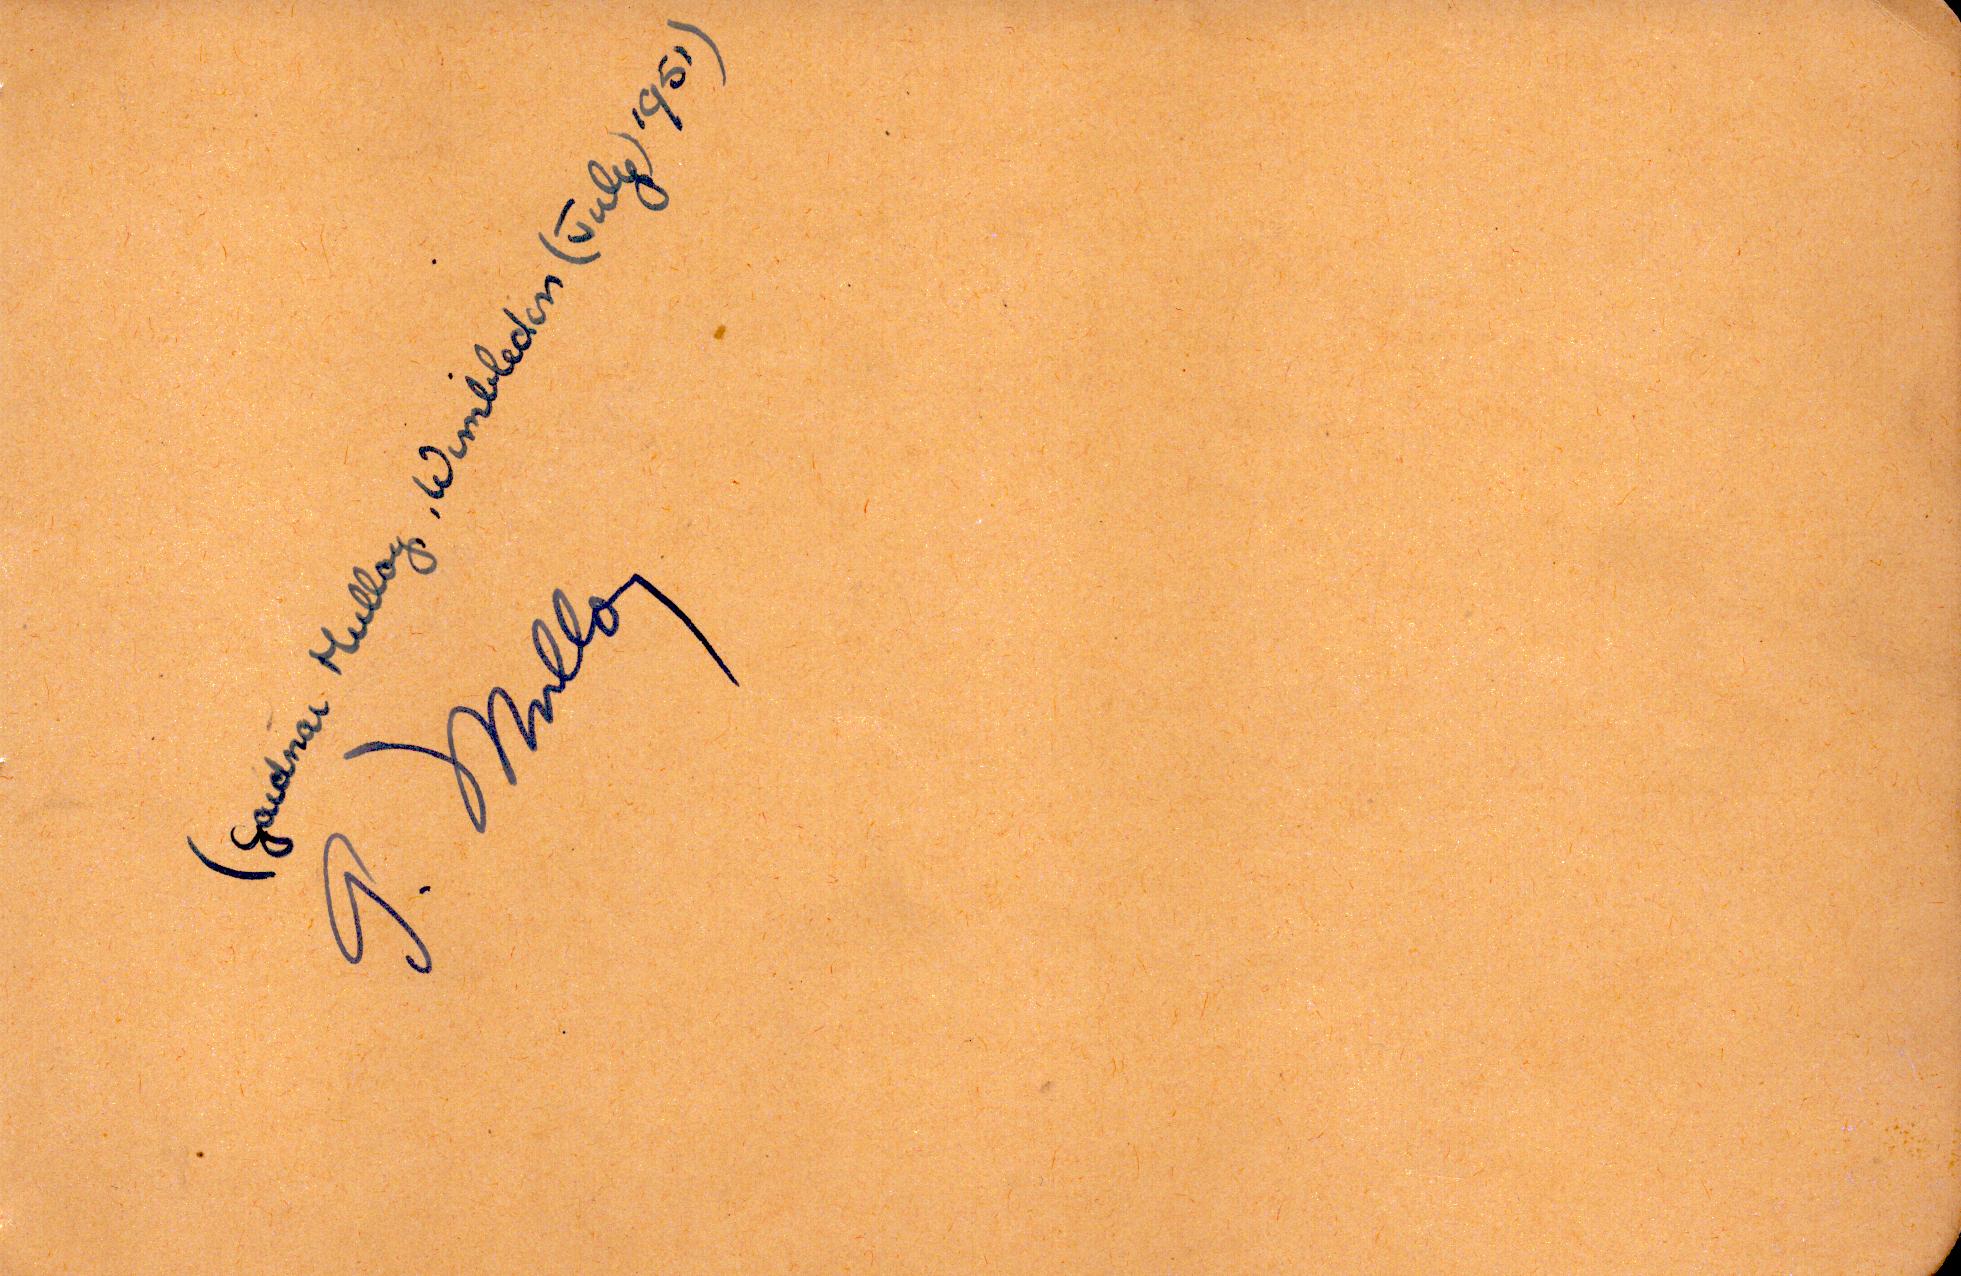 (Gardnar Mulloy, Wimbledon (July) 1951)
G. Mulloy